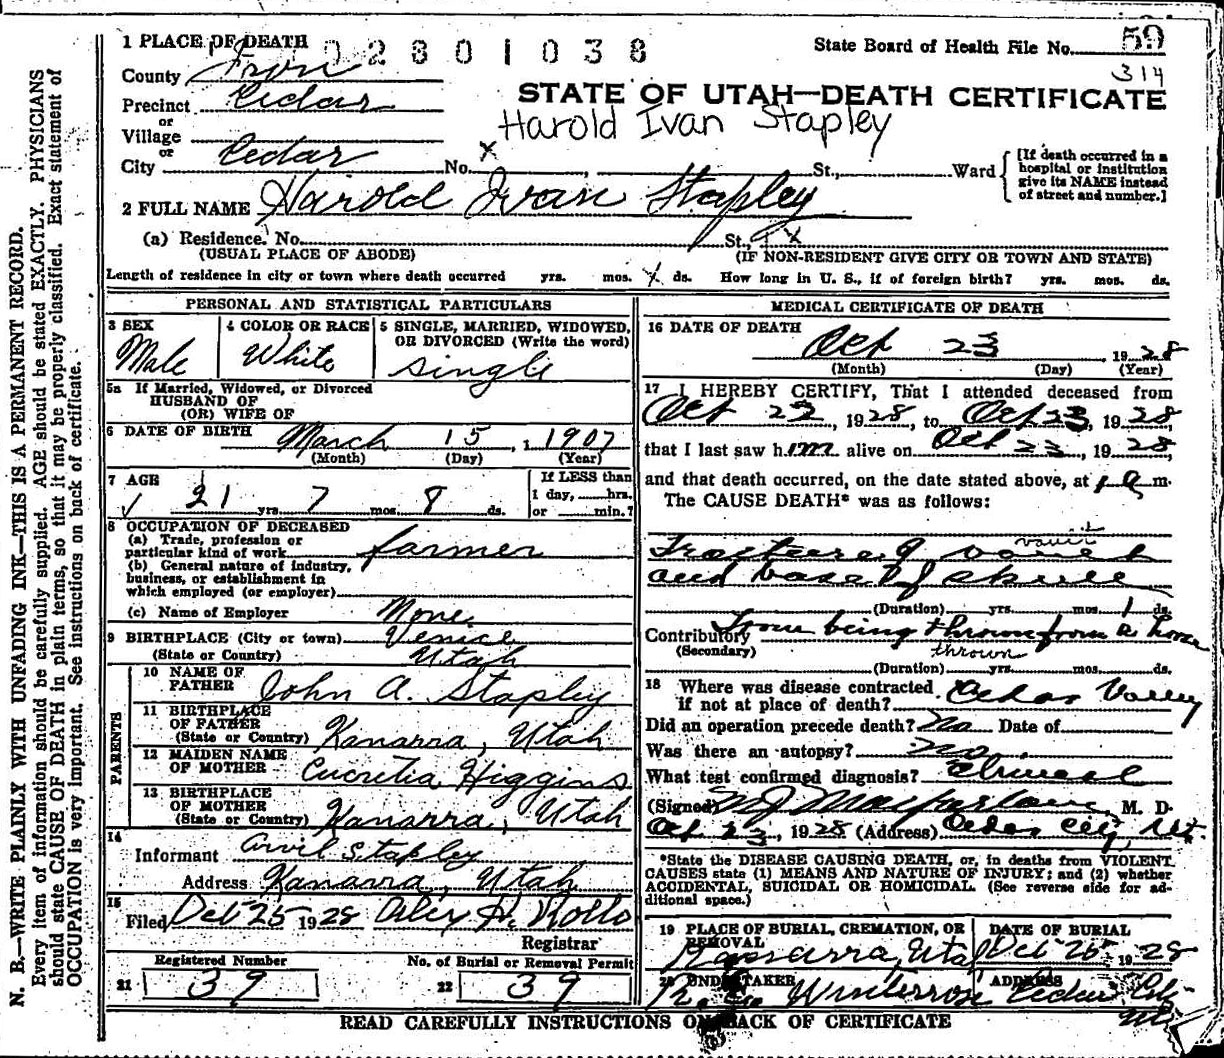 1 PLACE OF DEATH 02801038 State Board of Health File No. 59
314
County Iron
Precinct Cedar
STATE OF UTAH—DEATH CERTIFICATE
or
Village
Harold Ivan Stapley
or
City Cedar No. x St., Ward
[If death occurred in a hospital or institution give its NAME instead of street and number.]
2 FULL NAME Harold Ivan Stapley
(a) Residence. No. St., x
(USUAL PLACE OF ABODE) (IF NON-RESIDENT GIVE CITY OR TOWN AND STATE)
Length of residence in city or town where death occurred yrs. mos. ds. How long in U. S., if of foreign birth? yrs. mos. ds.
PERSONAL AND STATISTICAL PARTICULARS
3 SEX
Male
4 COLOR OR RACE
White
5 SINGLE, MARRIED, WIDOWED,
OR DIVORCED (Write the word)
single
5a If Married, Widowed, or Divorced
HUSBAND OF
(OR) WIFE OF
6 DATE OF BIRTH March 15, 1907
(Month) (Day) (Year)
7 AGE
21 yrs. 7 mos. 8 ds.
If LESS than
1 day, hrs.
or min.?
8 OCCUPATION OF DECEASED
(a) Trade, profession or
particular kind of work farmer
(b) General nature of industry,
business, or establishment in
which employed (or employer)
(c) Name of Employer None
9 BIRTHPLACE (City or town) Venice
(State or Country) Utah
PARENTS
10 NAME OF
FATHER John A. Stapley
11 BIRTHPLACE
OF FATHER
(State or Country) Kanarra, Utah
12 MAIDEN NAME
OF MOTHER Lucretia Higgins
13 BIRTHPLACE
OF MOTHER
(State or Country) Kanarra, Utah
14
Informant Arvil Stapley
Address Kanarra, Utah
15
Filed Oct 25 1928 Alex H. Rollo
Registrar
Registered Number
21 39
No. of Burial or Removal Permit
22 39
MEDICAL CERTIFICATE OF DEATH
16 DATE OF DEATH
Oct 23, 1928
(Month) (Day) (Year)
17 I HEREBY CERTIFY, That I attended deceased from
Oct 22, 1928, to Oct 23, 1928,
that I last saw him alive on Oct 23, 1928,
and that death occurred, on the date stated above, at m.
The CAUSE DEATH* was as follows:
vault
Fracture of vault
and base of skull
(Duration) yrs. mos. 1 ds.
Contributory from being thrown from a horse
(Secondary) thrown
(Duration) yrs. mos. ds.
18 Where was disease contracted Cedar Valley
if not at place of death?
Did an operation precede death? No Date of
Was there an autopsy? No
What test confirmed diagnosis? Clinical
(Signed) M J Macfarlane, M. D.
Oct 23, 1928 (Address) Cedar City, Ut.
*State the DISEASE CAUSING DEATH, or, in deaths from VIOLENT
CAUSES state (1) MEANS AND NATURE OF INJURY; and (2) whether
ACCIDENTAL, SUICIDAL OR HOMICIDAL. (See reverse side for ad-
ditional space.)
19 PLACE OF BURIAL, CREMATION, OR
REMOVAL
Kanarra, Utah
DATE OF BURIAL
Oct 26 1928
20 UNDERTAKER Winterrose
ADDRESS Cedar City
Ut
READ CAREFULLY INSTRUCTIONS ON BACK OF CERTIFICATE
N. B.—WRITE PLAINLY WITH UNFADING INK—THIS IS A PERMANENT RECORD.
Every item of information should be carefully supplied. AGE should be stated EXACTLY. PHYSICIANS
should state CAUSE OF DEATH in plain terms, so that it may be properly classified. Exact statement of
OCCUPATION is very important. See instructions on back of certificate.